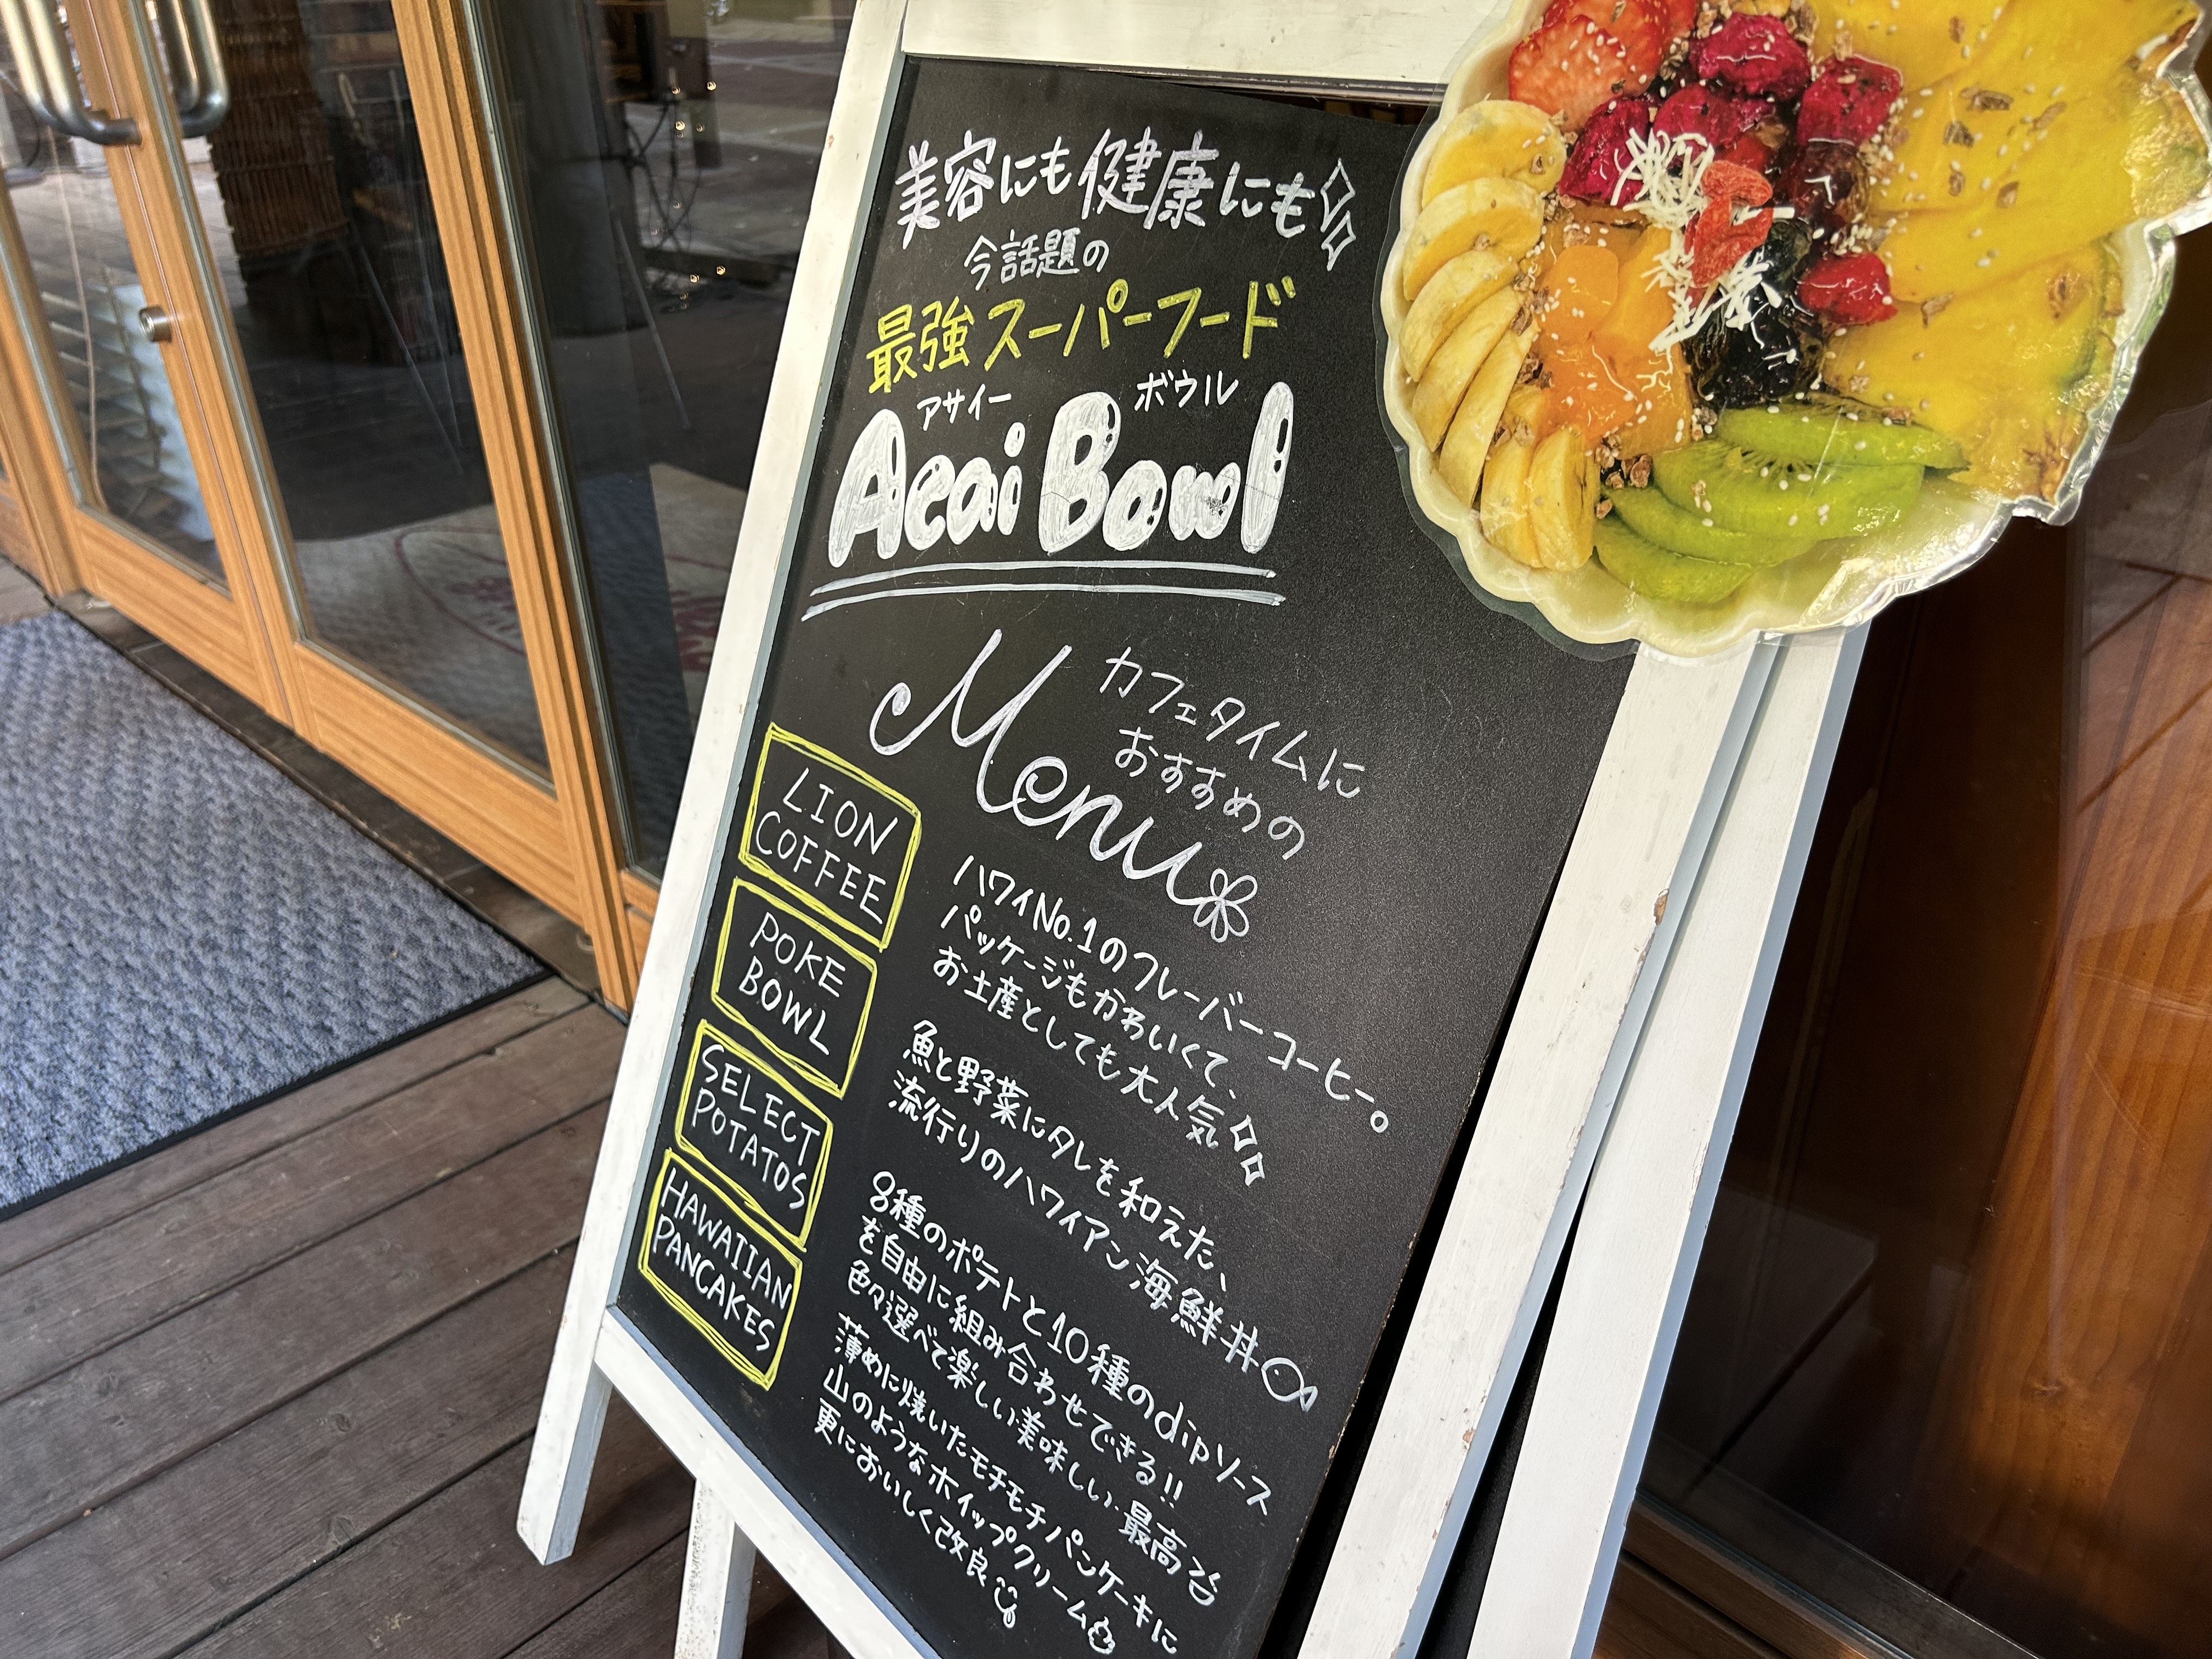 美容にも健康にも
今話題の
最強スーパーフード
アサイー ボウル
Acai Bowl
カフェタイムに
おすすめの
Menu
LION
COFFEE
ハワイNo.1のフレーバーコーヒー。
パッケージもかわいくて、
お土産としても大人気
POKE
BOWL
魚と野菜にタレを和えた、
流行りのハワイアン海鮮丼
SELECT
POTATOS
8種のポテトと10種のdipソース
を自由に組み合わせできる!!
色々選べて楽しい美味しい最高
HAWAIIAN
PANCAKES
薄めに焼いたモチモチパンケーキに
山のようなホイップクリーム
更においしく改良